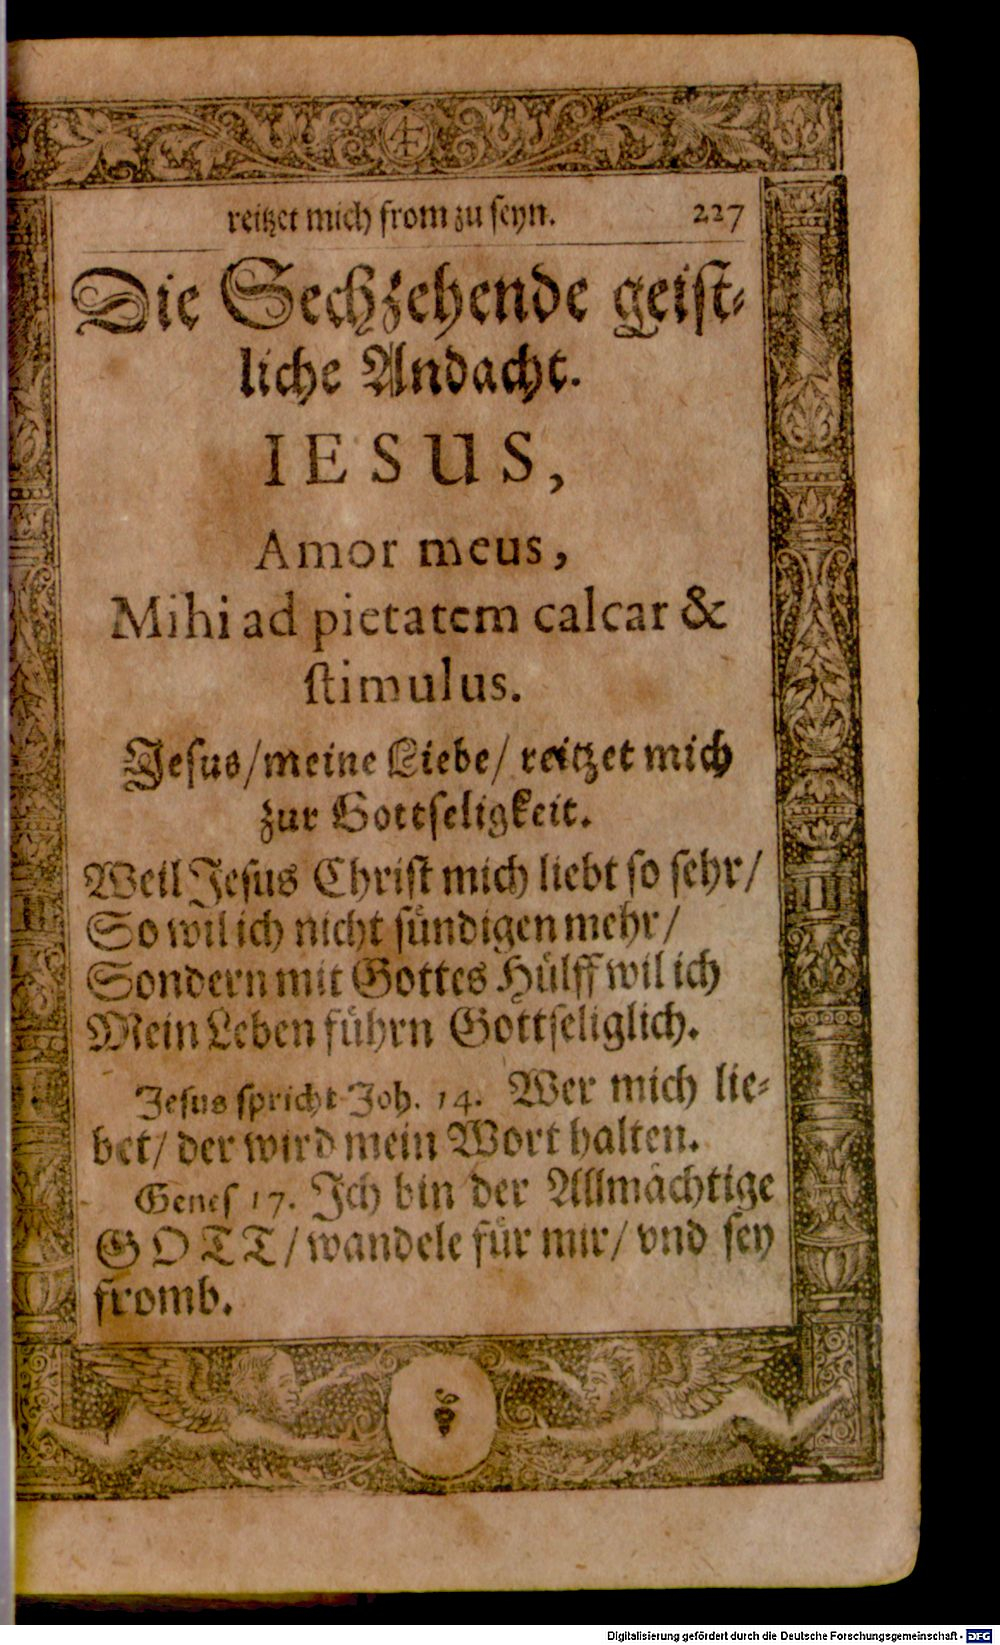 reitzet mich from zu seyn. 227
Die Sechzehende geist-
liche Andacht.
IESUS,
Amor meus,
Mihi ad pietatem calcar &
stimulus.
Jesus/meine Liebe/ reitzet mich
zur Gottseligkeit.
Weil Jesus Christ mich liebt so sehr/
So wil ich nicht sündigen mehr/
Sondern mit Gottes Hülff wil ich
Mein Leben führn Gottseliglich.
Jesus spricht Joh. 14. Wer mich lie-
bet/ der wird mein Wort halten.
Genes 17. Ich bin der Allmächtige
GOTT/ wandele für mir/ vnd sey
fromb.
Digitalisierung gefördert durch die Deutsche Forschungsgemeinschaft - DFG